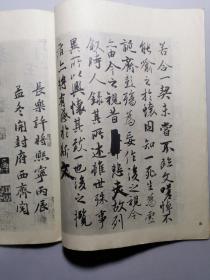 若合一契未嘗不臨文嗟悼不
能喻之於懷固知一死生為虛
誕齊彭殤為妄作後之視今
亦由今之視昔悲夫故列
敘時人錄其所述雖世殊事
異所以興懷其致一也後之攬
者亦將有感於斯文
長樂許將熙寧丙辰
孟冬開封府西齋閱